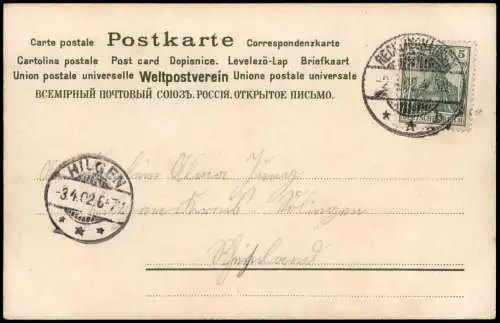 Carte postale Postkarte Correspondenzkarte
Cartolina postale Post card Dopisnice. Levelező-Lap Briefkaart
Union postale universelle Weltpostverein Unione postale universale
ВСЕМІРНЫЙ ПОЧТОВЫЙ СОЮЗЪ. РОССІЯ. ОТКРЫТОЕ ПИСЬМО.
5
HILGEN
-3.4.02.6-7
Alma Jung
Solingen
Rheinland